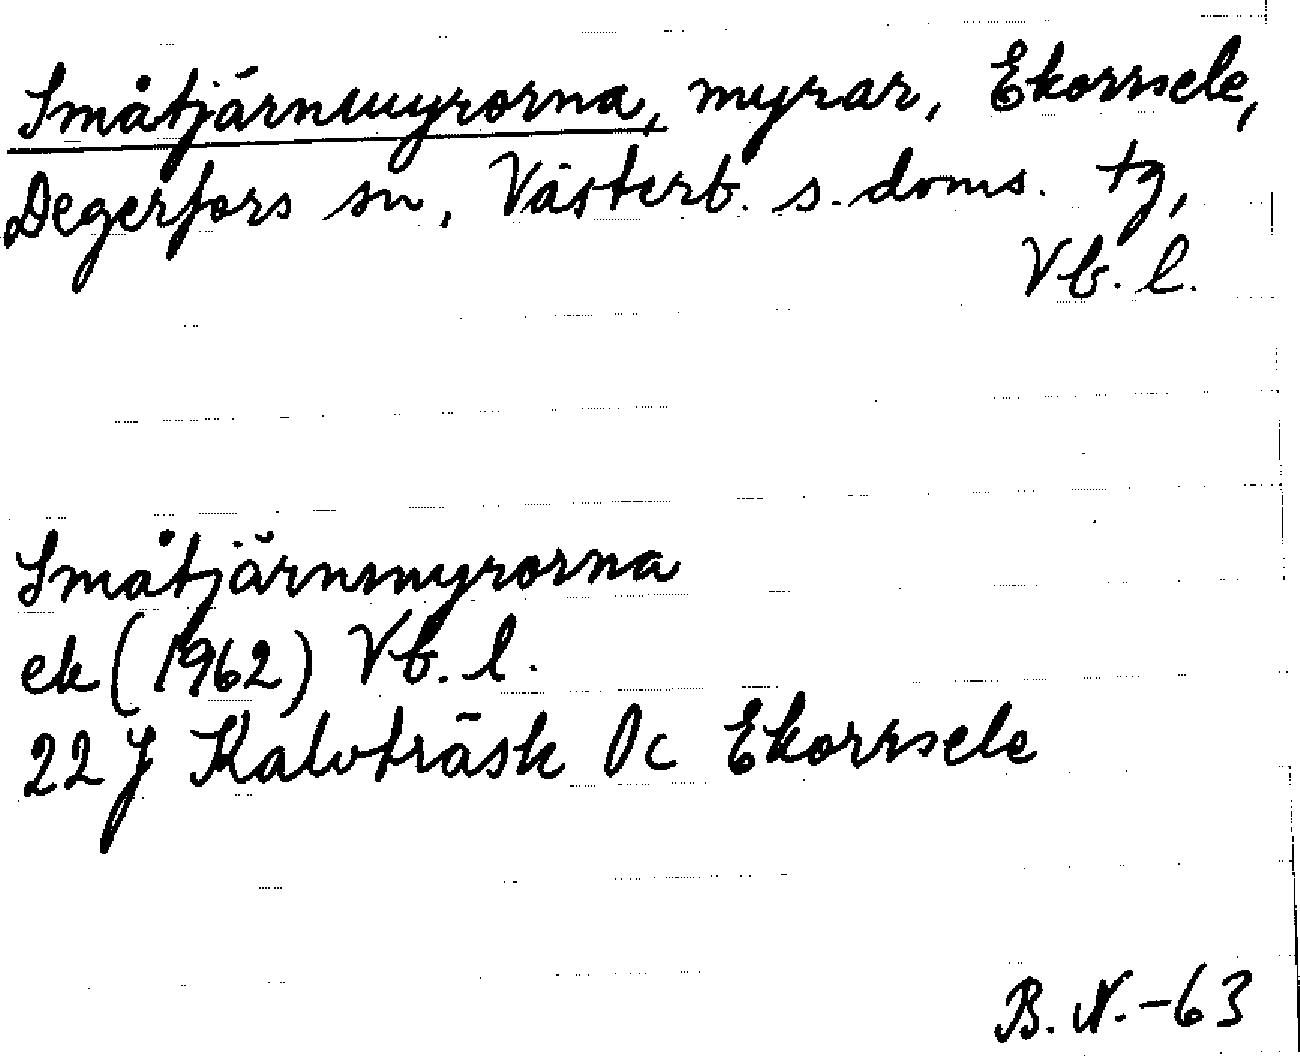 Småtjärnmyrorna, myrar, Ekorrsele,
Degerfors sn, Västerb. s. doms. tg,
Vb. l.
Småtjärnmyrorna
ek (1962) Vb. l.
22 J Kalvträsk 0c Ekorrsele
B. N. -63